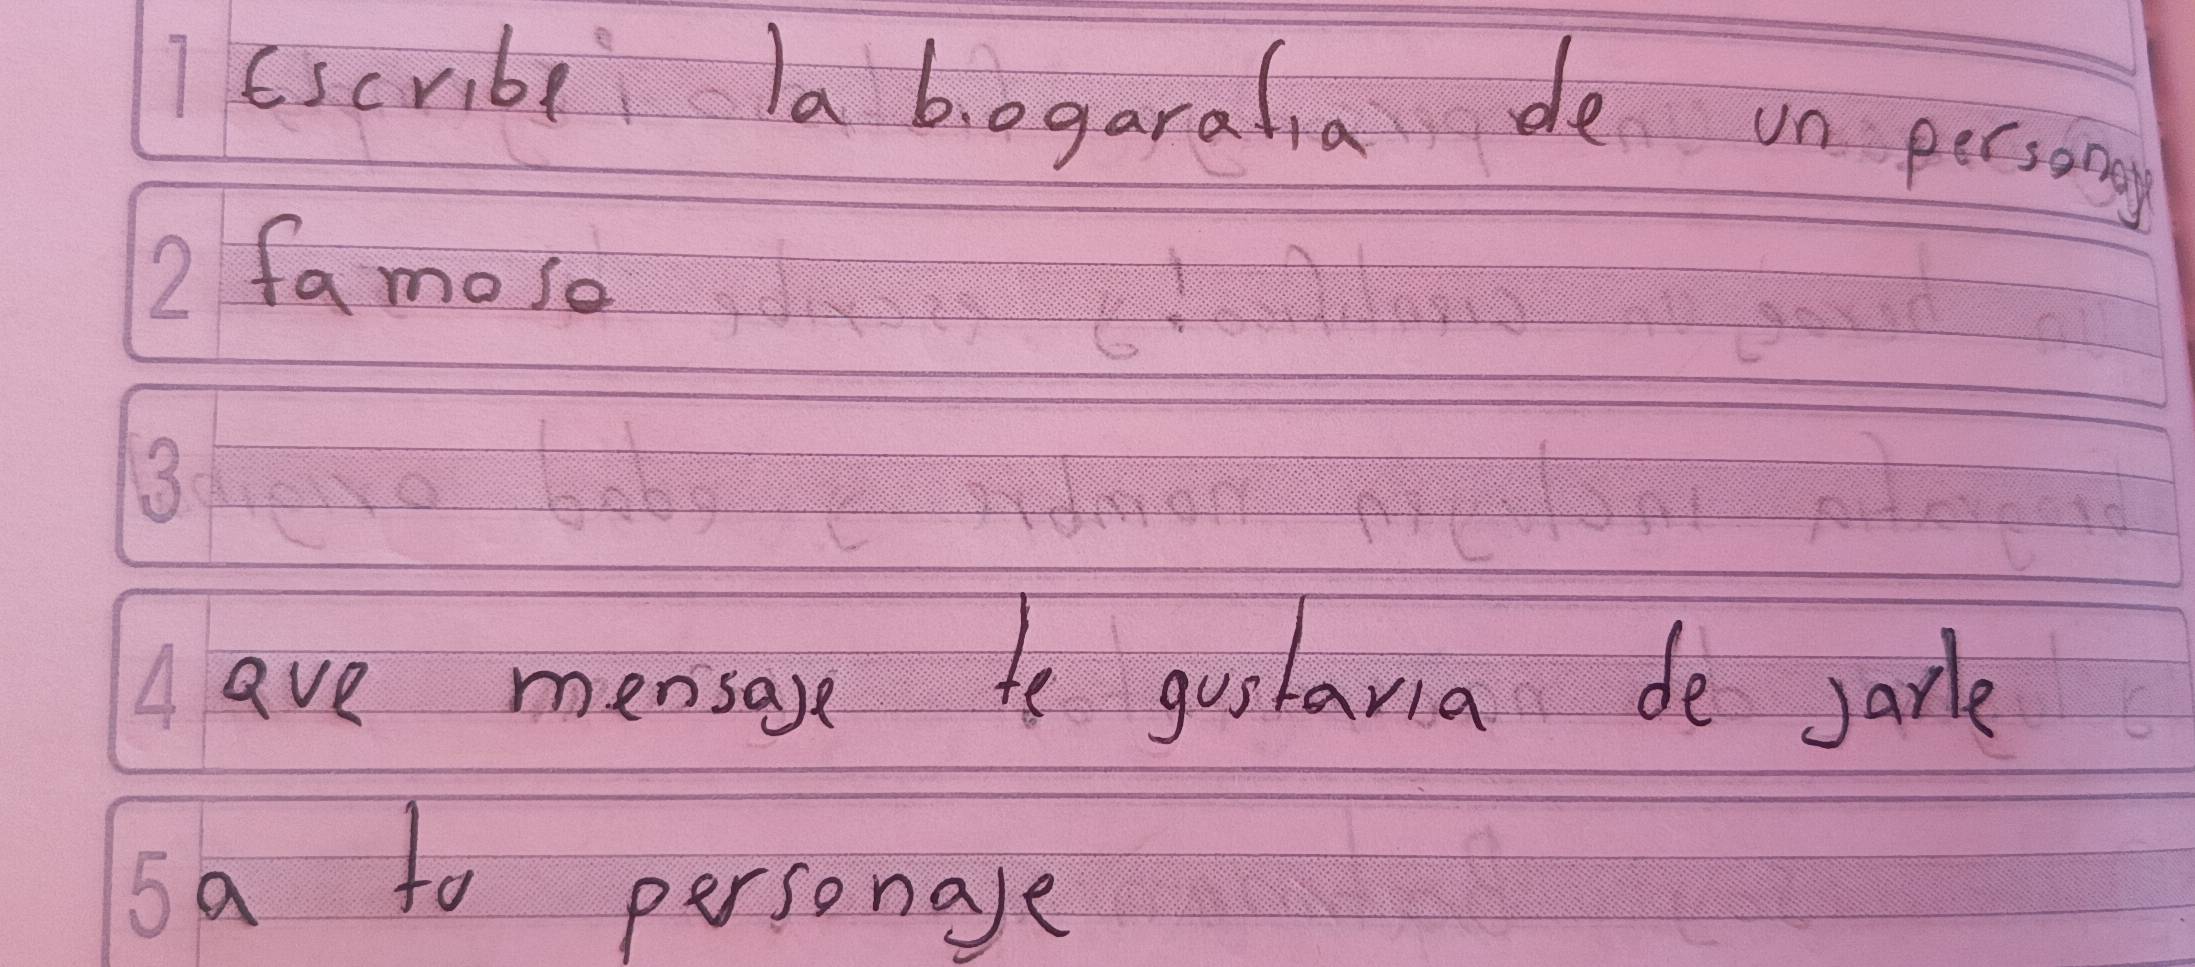 1 Escribe la biogarafia de un personaje
2 famoso
3
4 que mensaje te gustaria de jarle
5 a tu personaje